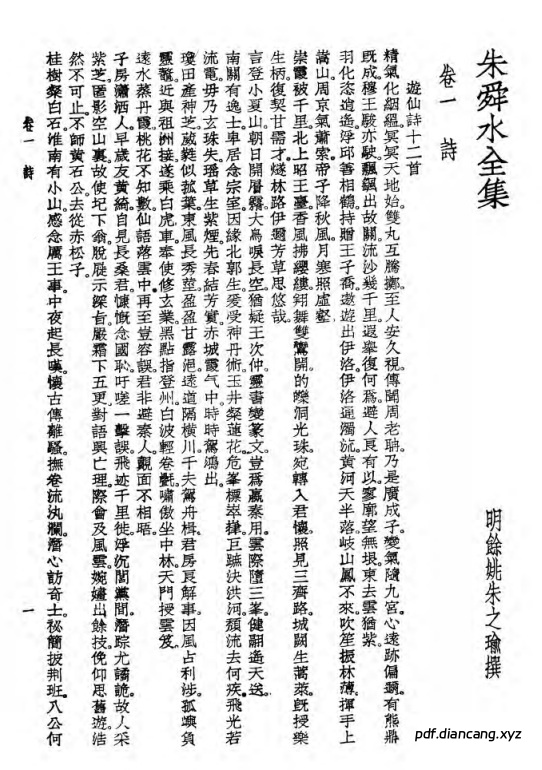 朱舜水全集
卷一　詩
明餘姚朱之瑜撰
遊仙詩十二首
精氣化絪縕。冥冥天地始。雙丸互騰擲。至人安久視。傳聞周老聃。乃是廣成子。變氣隨九宮。心遠跡偏邇。有熊鼎
旣成。穆王駿亦駛。飄飄出故關。流沙幾千里。遐舉復何爲。避人良有以。寥廓望無垠。東去雲猶紫。
羽化恣逍遙。浮邱善相鶴。持贈王子喬。遨遊出伊洛。伊洛通濁流。黃河天半落。岐山鳳不來。吹笙振林薄。揮手上
嵩山。周京氣蕭索。帝子降秋風。月寒照虛壑。
崇霞被千里。北上昭王臺。香風拂纓縷。翱舞雙鸞開。的皪洞光珠。宛轉入君懷。照見三齊路。城闕生蒿萊。旣授樂
生柄。復契甘需才。燧林路伊邇。芳草思悠哉。
言登小夏山。朝日開層霧。大鳥唳長空。猶疑王次仲。靈書變篆文。豈爲嬴秦用。雲際墮三峯。健翮遙天送。
南關有逸士。卑居念宗室。因緣北郭生。爰受神丹術。玉井粲蓮花。危峯標翠嵂。巨蹠決洪河。頹流去何疾。飛光若
流電。毋乃玄珠失。瑤草生紫煙。先春結芳實。赤城霞气中。時時駕鴻出。
瓊田產神芝。葳蕤似菰葉。東風長秀莖。盈盈甘露浥。遠道隔橫川。千夫駕舟楫。君房良解事。因風占利涉。孤嶼負
靈鼇。近與祖洲接。遂乘白虎車。奉使修玄業。黑點指登州。白波輕卷氎。嘯傲坐中林。天門授雲笈。
遠水蒸丹霞。桃花不知數。仙語落雲中。再至豈容誤。君非避秦人。覿面不相晤。
子房瀟洒人。早歲友黃綺。自見長桑君。慷慨念國恥。吁嗟一擊誤。飛迹千里徙。浮沉閭黨間。潛踪尤譎詭。故人采
紫芝。匿影空山裏。故使圯下翁。脫屣示深旨。嚴霜下五更。對語興亡理。際會及風雲。婉孌出餘技。俛仰思舊遊。浩
然不可止。不師黃石公。去從赤松子。
桂樹粲白石。淮南有小山。感念厲王事。中夜起長嘆。懷古傳離騷。撫卷流汍瀾。潛心訪奇士。祕簡披荆班。八公何
卷一　詩
一
pdf.diancang.xyz